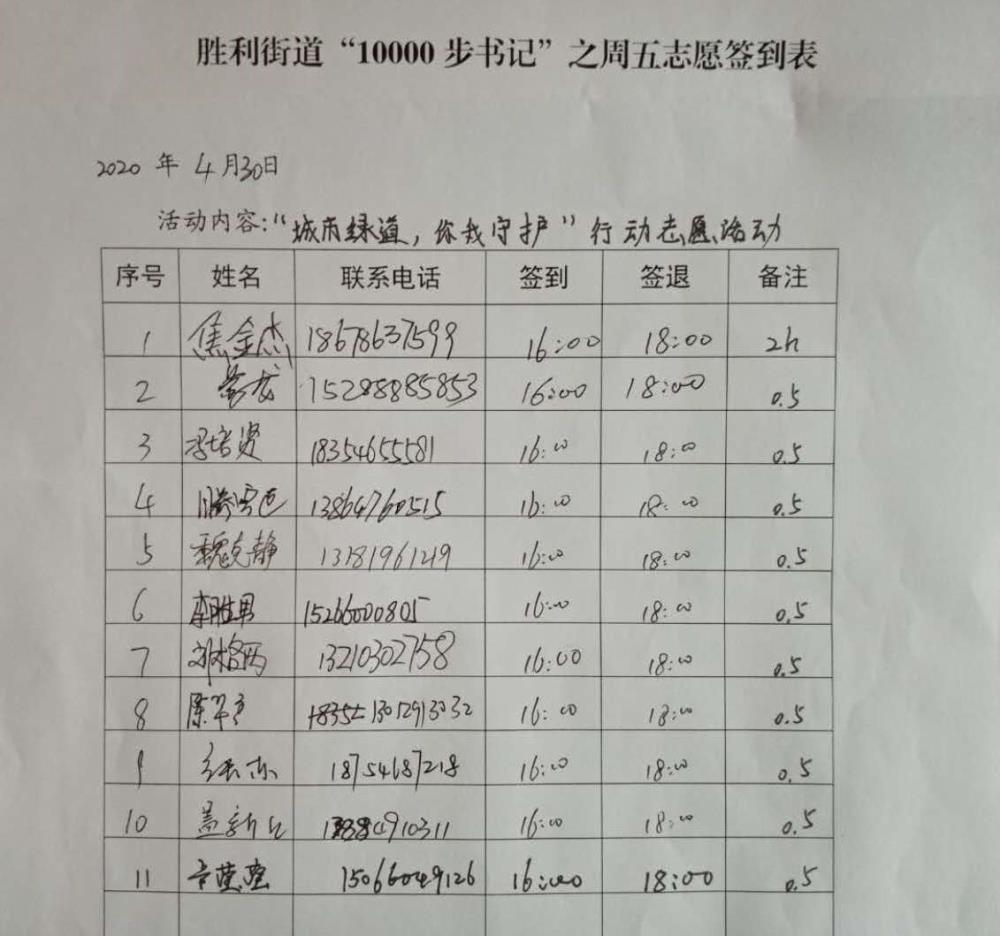 胜利街道“10000步书记”之周五志愿签到表
2020年4月30日
活动内容:“城市绿道,你我守护”行动志愿活动
序号 姓名 联系电话 签到 签退 备注
1 焦金杰 18678637599 16:00 18:00 2h
2 15288885853 16:00 18:00 0.5
3 冯培贤 18354655581 16:00 18:00 0.5
4 13864760515 16:00 18:00 0.5
5 魏克静 13181961219 16:00 18:00 0.5
6 李胜男 15266000805 16:00 18:00 0.5
7 13210302758 16:00 18:00 0.5
8 16:00 18:00 0.5
9 18754687218 16:00 18:00 0.5
10 盖新 16:00 18:00 0.5
11 莹莹 15066049126 16:00 18:00 0.5